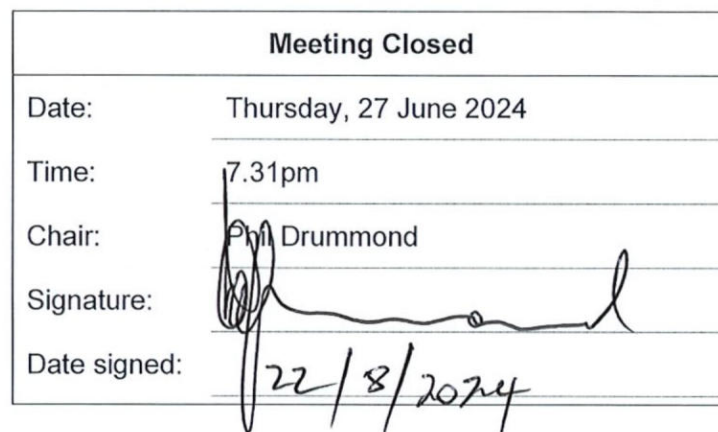 Meeting Closed
Date: Thursday, 27 June 2024
Time: 7.31pm
Chair: Phil Drummond
Signature:
Date signed: 22/8/2024